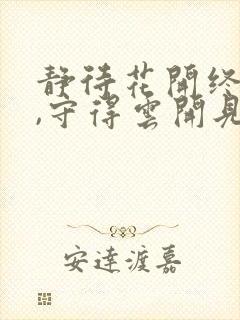 靜待花開終
,守得雲開見
安達渡嘉